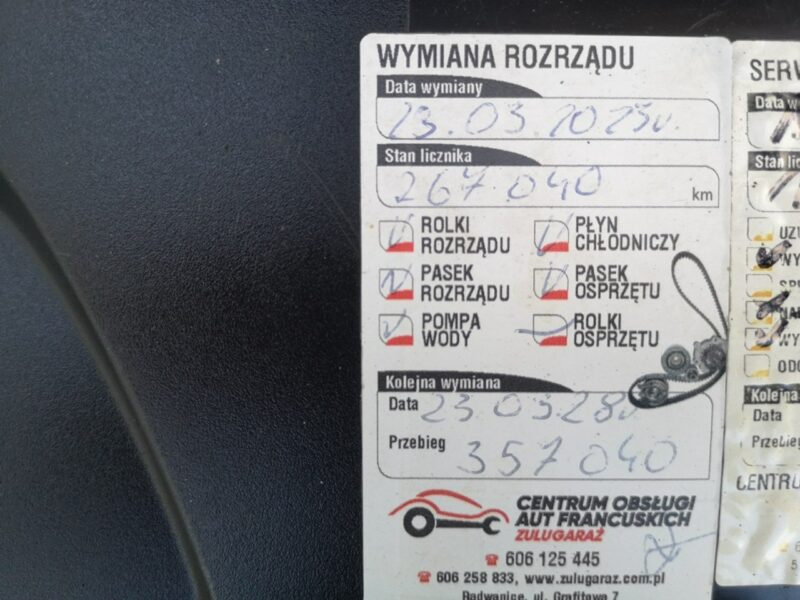 WYMIANA ROZRZĄDU
Data wymiany
23.03.2023r.
Stan licznika
267 040 km
ROLKI ROZRZĄDU
PŁYN CHŁODNICZY
PASEK ROZRZĄDU
PASEK OSPRZĘTU
POMPA WODY
ROLKI OSPRZĘTU
Kolejna wymiana
Data 23 03 28r
Przebieg 357 040
CENTRUM OBSŁUGI
AUT FRANCUSKICH
ZULUGARAŻ
606 125 445
606 258 833, www.zulugaraz.com.pl
Radwanice, ul. Grafitowa 7
Stan
Kolejna
Data